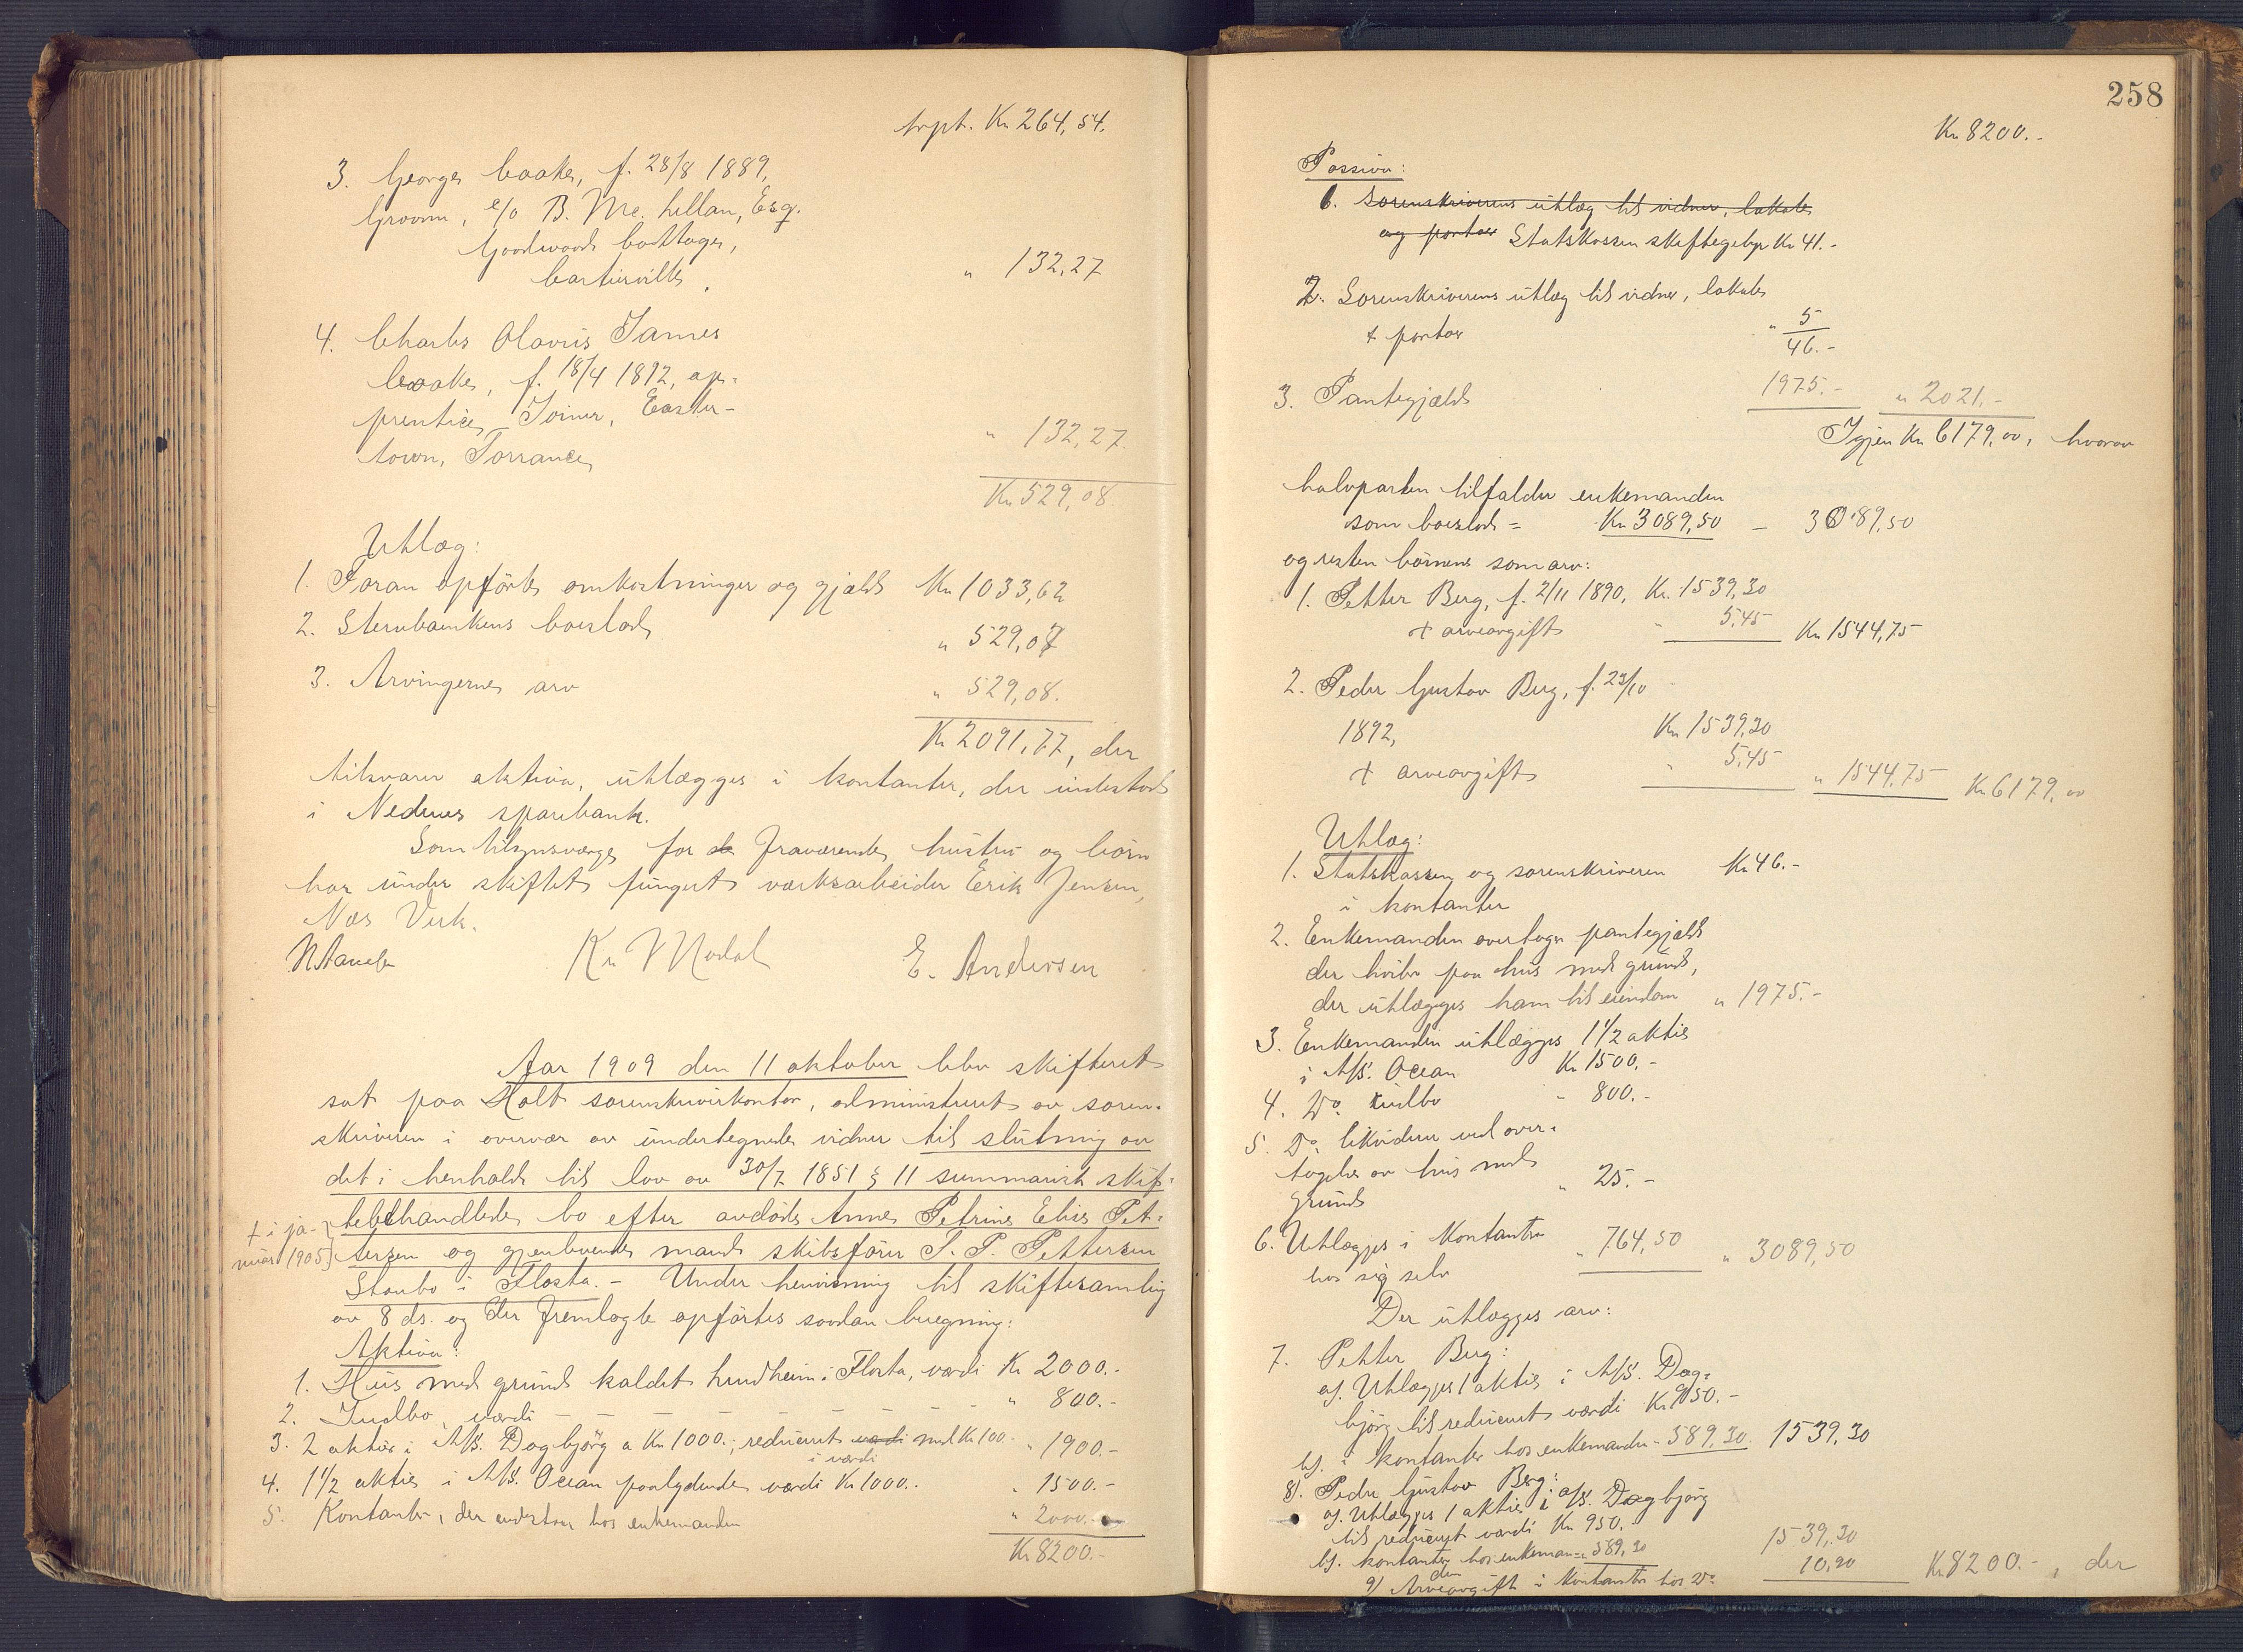 trpt. Kr 264,54.
3. George Cooke, f. 28/8 1889,
Groom, c/o B. Mc. Lellan, Esq.
Goodwood Cottage,
Cartierville. " 132,27
4. Charles Olavus James
Cooke, f. 18/4 1892, ap-
prentice Joiner, Easter-
town, Torrance " 132,27
Kr 529,08.
Utlæg:
1. Foran opførte omkostninger og gjæld Kr 1033,62
2. Stervboenkens boeslod " 529,07
3. Arvingernes arv " 529,08.
Kr 2091,77, der
tilsvarer aktiva, utlægges i kontanter, der indestod
i Nedenes sparebank.
Som tilsynsværge for de fraværende hustru og børn
har under skiftet fungert verksarbeider Erik Jensen,
Næs Verk.
Kr Modal E. Andersen
Aar 1909 den 11 oktober blev skifteret
sat paa Holt sorenskriverkontor, administreret av soren-
skriveren i overvær av undertegnede vidner til slutning av
det i henhold til lov av 30/7 1851 § 11 summarisk skif-
tebehandlede bo efter avdøde Anne Petrine Elise Pet-
† i ja-
tersen og gjenlevende mand skibsfører T. P. Pettersen
nuar 1905
Staubø i Flosta. - Under henvisning til skiftesamling
av 8 ds. og der fremlagte opførtes saadan beregning:
Aktiva:
1. Hus med grund kaldet Lundheim i Flosta, værdi Kr 2000.-
2. Indbo, værdi " 800.-
3. 2 aktier i A/S. Dagbjørg a Kr 1000.-, reduceret værdi med Kr 100.- " 1900.-
i værdi
4. 1 1/2 aktie i A/S. Ocean paalydende værdi Kr 1000.- " 1500.-
5. Kontanter, der indestaar hos enkemanden " 2000.-
Kr 8200.-
258
Kr 8200.-
Passiva:
1. Sorenskriverens utlæg til vidner, lokale
og portoer Statskassen skiftegebyr Kr 41.-
2. Sorenskriverens utlæg til vidner, lokale
+ portoer " 5
46.-
3. Pantegjæld 1975.- " 2021.-
Igjen Kr 6179,00, hvorav
halvparten tilfalder enkemanden
som boeslod = Kr 3089,50 — 3089,50
og resten børnene som arv:
1. Petter Berg, f. 2/11 1890, Kr. 1539,30
+ arveavgift " 5,45 Kr 1544,75
2. Peder Gustav Berg, f. 23/10
1892, Kr 1539,30
+ arveavgift " 5,45 " 1544,75 Kr 6179,00
Utlæg:
1. Statskassen og sorenskriveren Kr 46.-
i kontanter
2. Enkemanden overtager pantegjæld
der hviler paa hus med grund,
der utlægges ham til eiendom " 1975.-
3. Enkemanden utlægges 1 1/2 aktie
i A/S. Ocean Kr 1500.-
4. Do. indbo - 800.-
5. Do. likviderer ved over-
tagelse av hus med
grund " 25.-
6. Utlægges i Kontanter
hos sig selv " 764,50 " 3089,50
Der utlægges arv:
7. Petter Berg:
a). Utlægges 1 aktie i A/S. Dag-
bjørg til reduceret værdi Kr 950.-
b). i kontanter hos enkemanden - 589,30. 1539,30
8). Peder Gustav Berg:
a). Utlægges 1 aktie i A/S. Dagbjørg
til reduceret værdi Kr 950.
b). kontanter hos enkeman- " 589,30 1539,30
den
9) Arveavgift i Kontanter hos Do 10,90 Kr 8200.-, der